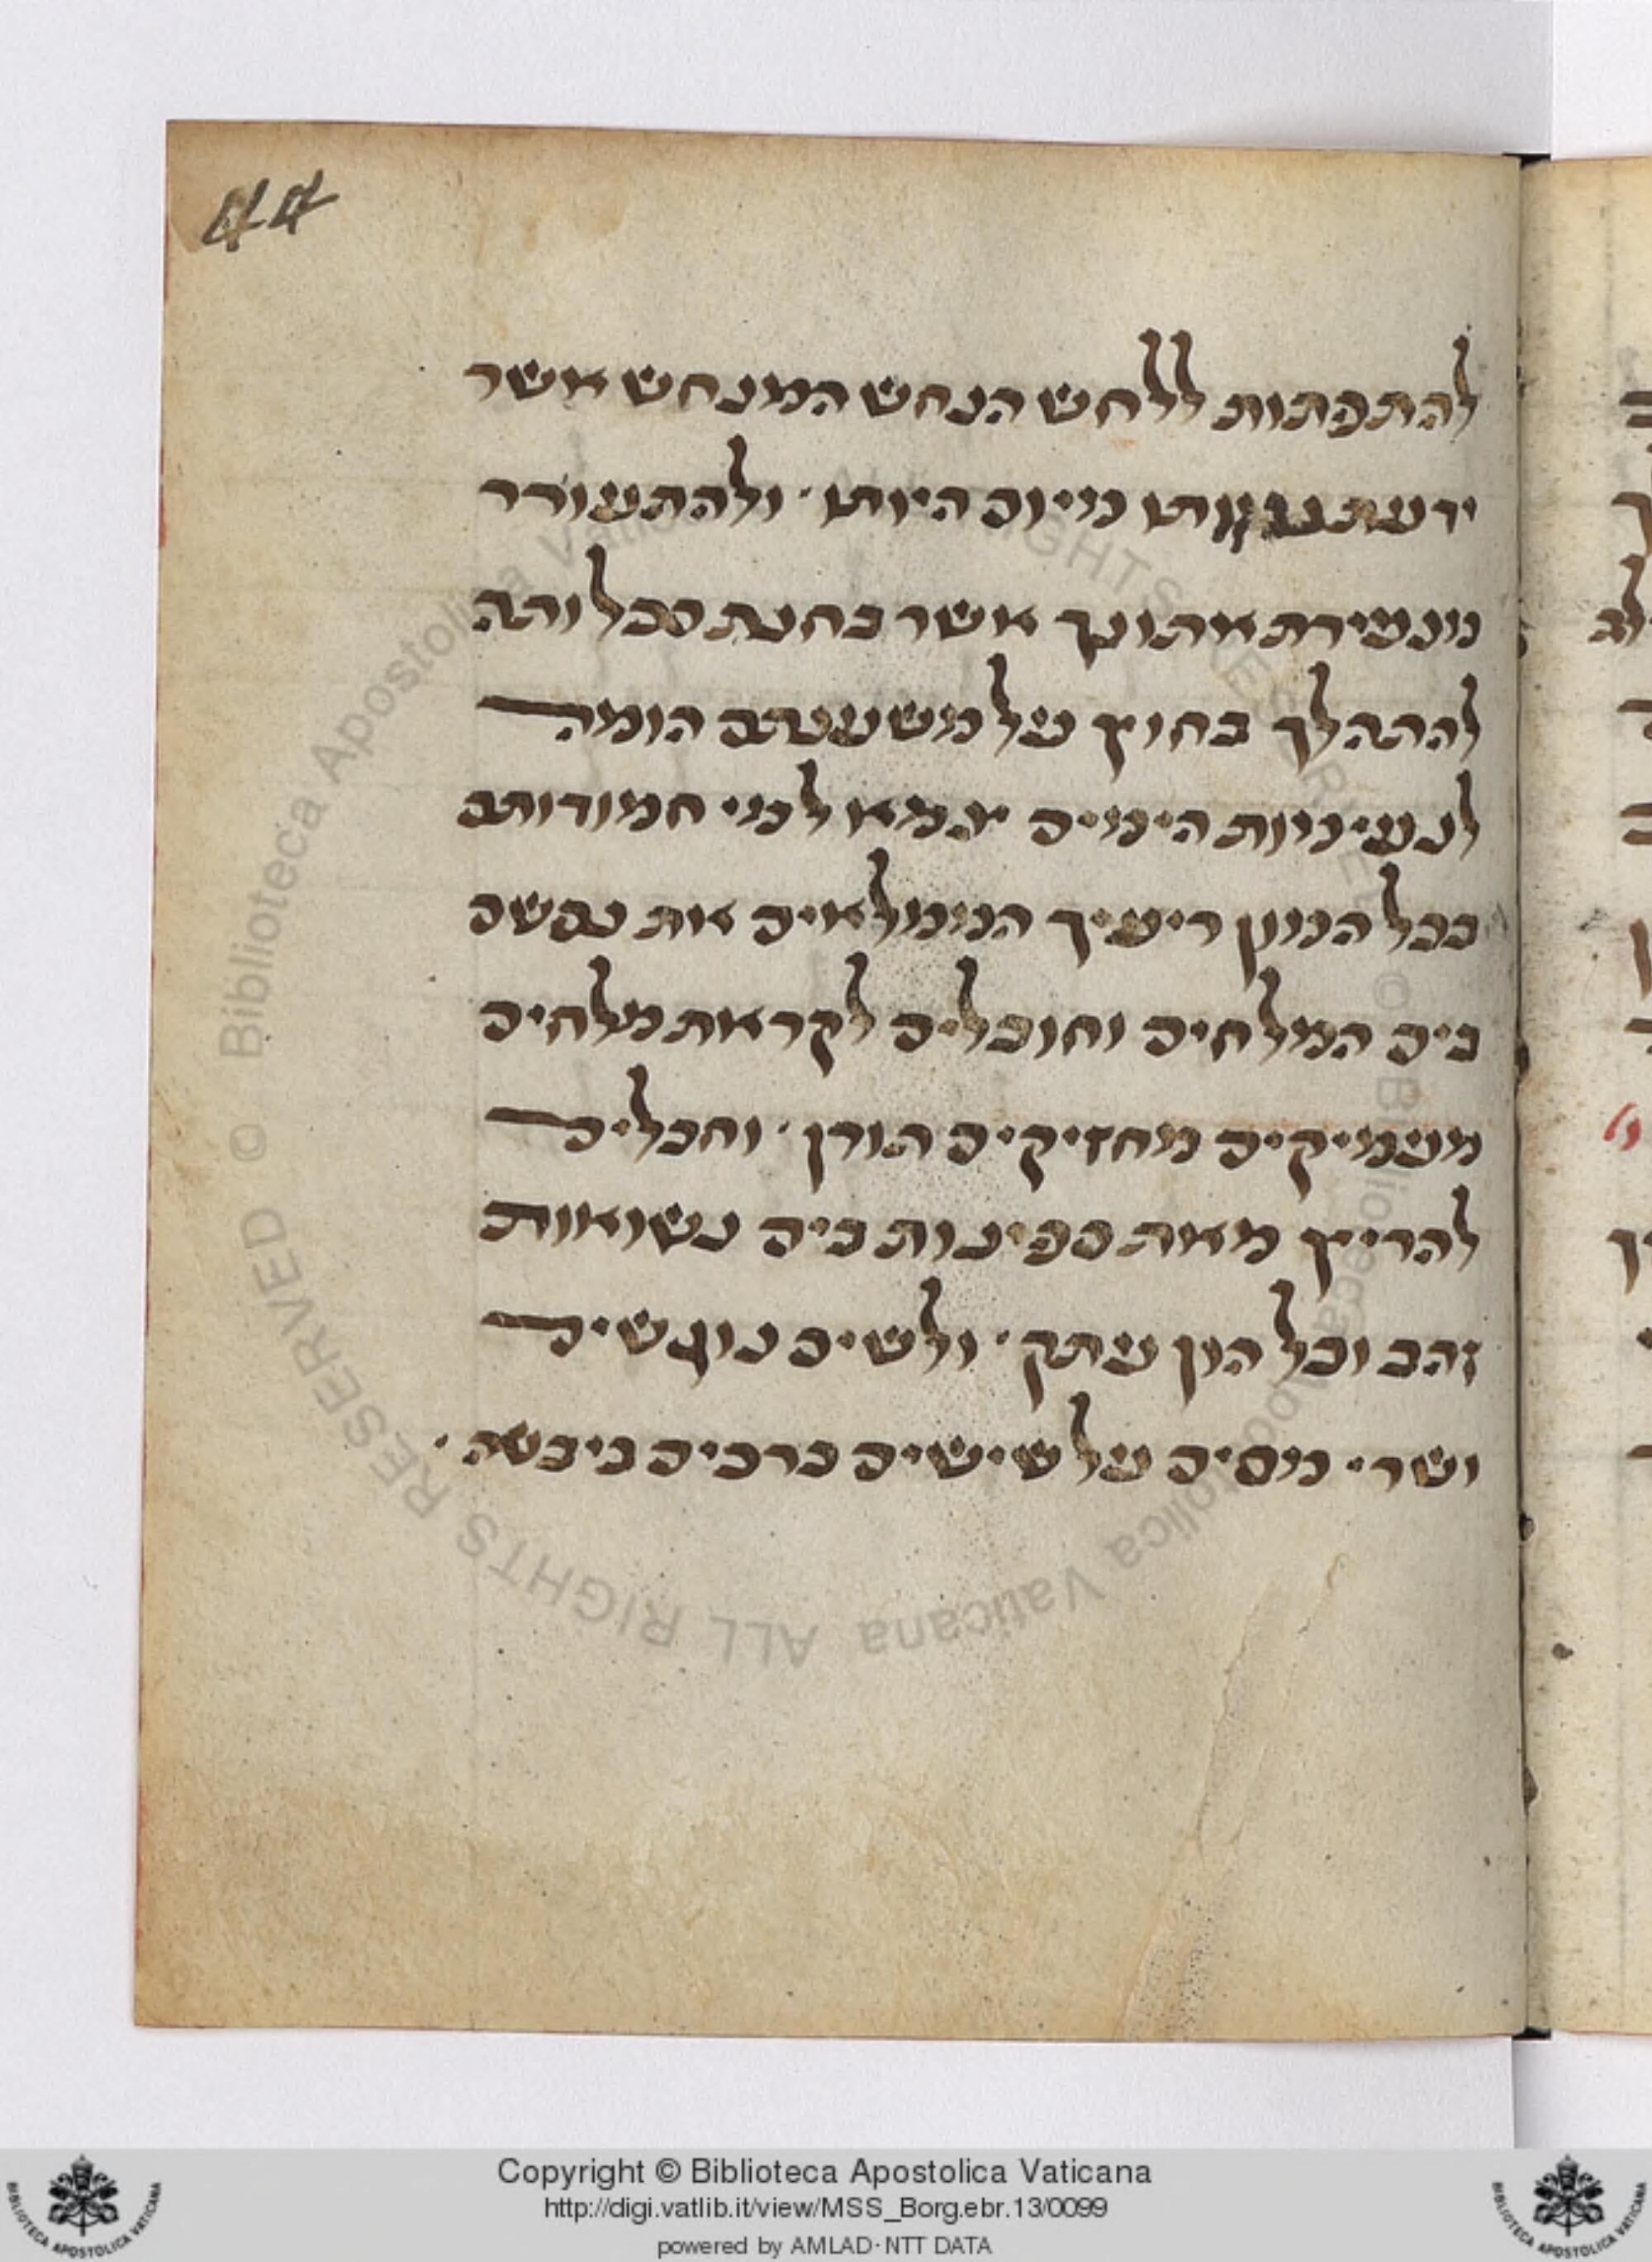 44
להתפתות ללחש הנחש המנחש אשר
ידעת מיום היותו · ולהתעורר
אתונך אשר בחנת סכלותה
להתהלך בחוץ על משענתם הומה
הימים לבני חמודותם
ככל המון ריעיך הממלאים את נפשם
בים המלחים וחובלים לקראת מלחים
מעמיקים מחזיקים תורן · וחבלים
להריץ מאת ספינות בים נשואות
זהב וכל הון עתק · ולשים נוגשים
ושרי מסים על שישים כרכים ביבשה ·
Copyright © Biblioteca Apostolica Vaticana
http://digi.vatlib.it/view/MSS_Borg.ebr.13/0099
powered by AMLAD·NTT DATA